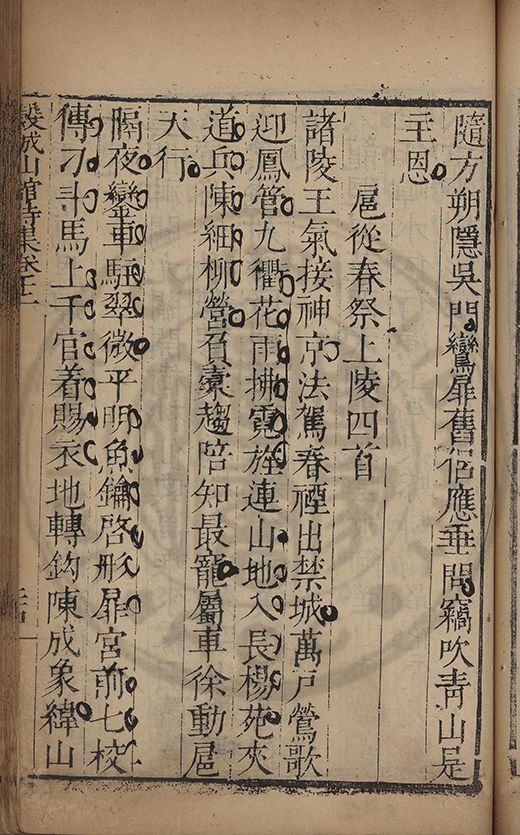 隨方朔隱吳門鸞扉舊侶應垂問竊吹青山是
主恩
扈從春祭上陵四首
諸陵王氣接神京法駕春禋出禁城萬戶鶯歌
迎鳳管九衢花雨拂霓旌連山地入長楊苑夾
道兵陳細柳營負橐趨陪知最寵屬車徐動扈
天行
隔夜鑾車駐翠微平明魚鑰啓彤扉宮前七校
傳刁斗馬上千官着賜衣地轉鈎陳成象緯山
山館詩集卷